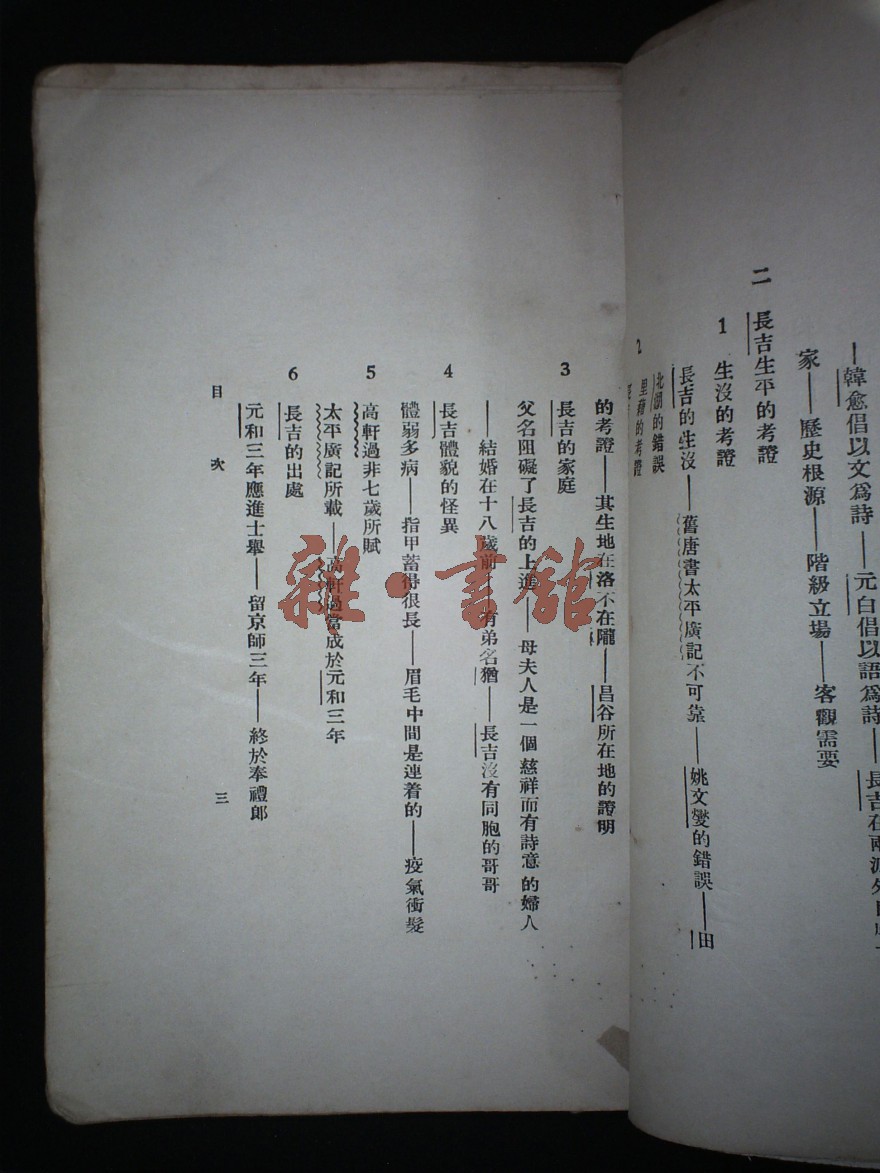 —韓愈倡以文爲詩——元白倡以語爲詩——長吉在兩派外
家——歷史根源——階級立場——客觀需要
二 長吉生平的考證
1 生沒的考證
長吉的生沒——舊唐書太平廣記不可靠——姚文燮的錯誤——田
北湖的錯誤
2 里籍的考證
的考證——其生地在洛不在隴——昌谷所在地的證明
3 長吉的家庭
父名阻礙了長吉的上進——母夫人是一個慈祥而有詩意的婦人
——結婚在十八歲前——有弟名猶——長吉沒有同胞的哥哥
4 長吉體貌的怪異
體弱多病——指甲蓄得很長——眉毛中間是連着的——疫氣衝髮
5 高軒過非七歲所賦
太平廣記所載——高軒過當成於元和三年
6 長吉的出處
元和三年應進士舉——留京師三年——終於奉禮郎
目次 三
雜·書館